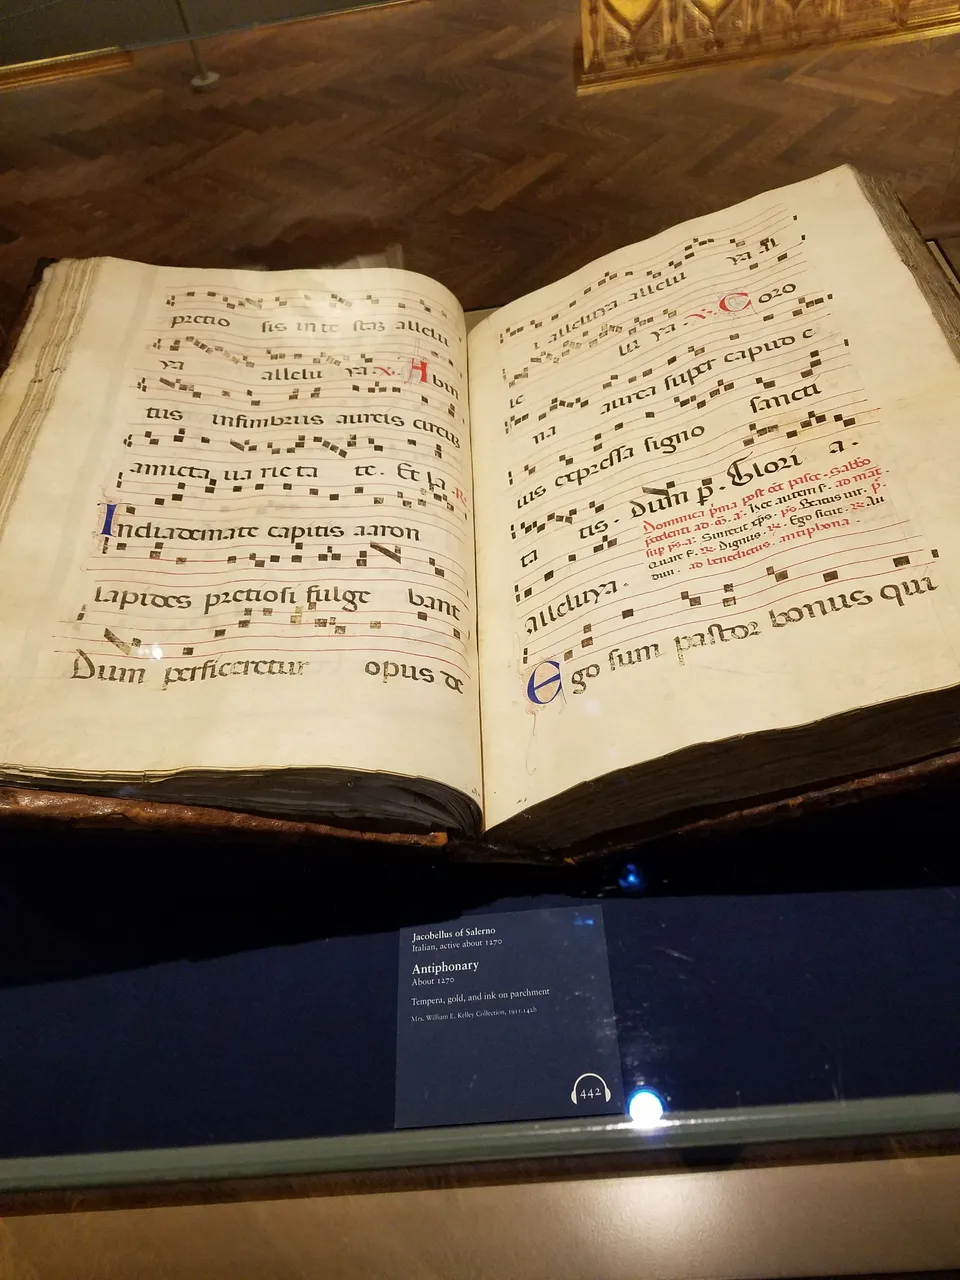 pretio sis in te stas allelu
ya allelu ya. Abin
tus in fimbriis aureis circus
amicta uarieta te. Et la. R.
In diademate capitis aaron
lapides pretiosi fulge bant
Dum perficeretur opus de
alleluya. allelu ya
lu ya. V. Coro
na aurea super caput e
ius expressa signo sancti
ta tis. Dum p. Glori a.
Dominica pma post oct pasce. Sabbo
alleluya.
ad benedictus. antiphona.
Ego sum pastor bonus qui
Jacobellus of Salerno
Italian, active about 1270
Antiphonary
About 1270
Tempera, gold, and ink on parchment
Mrs. William E. Kelley Collection, 1911.142b
442